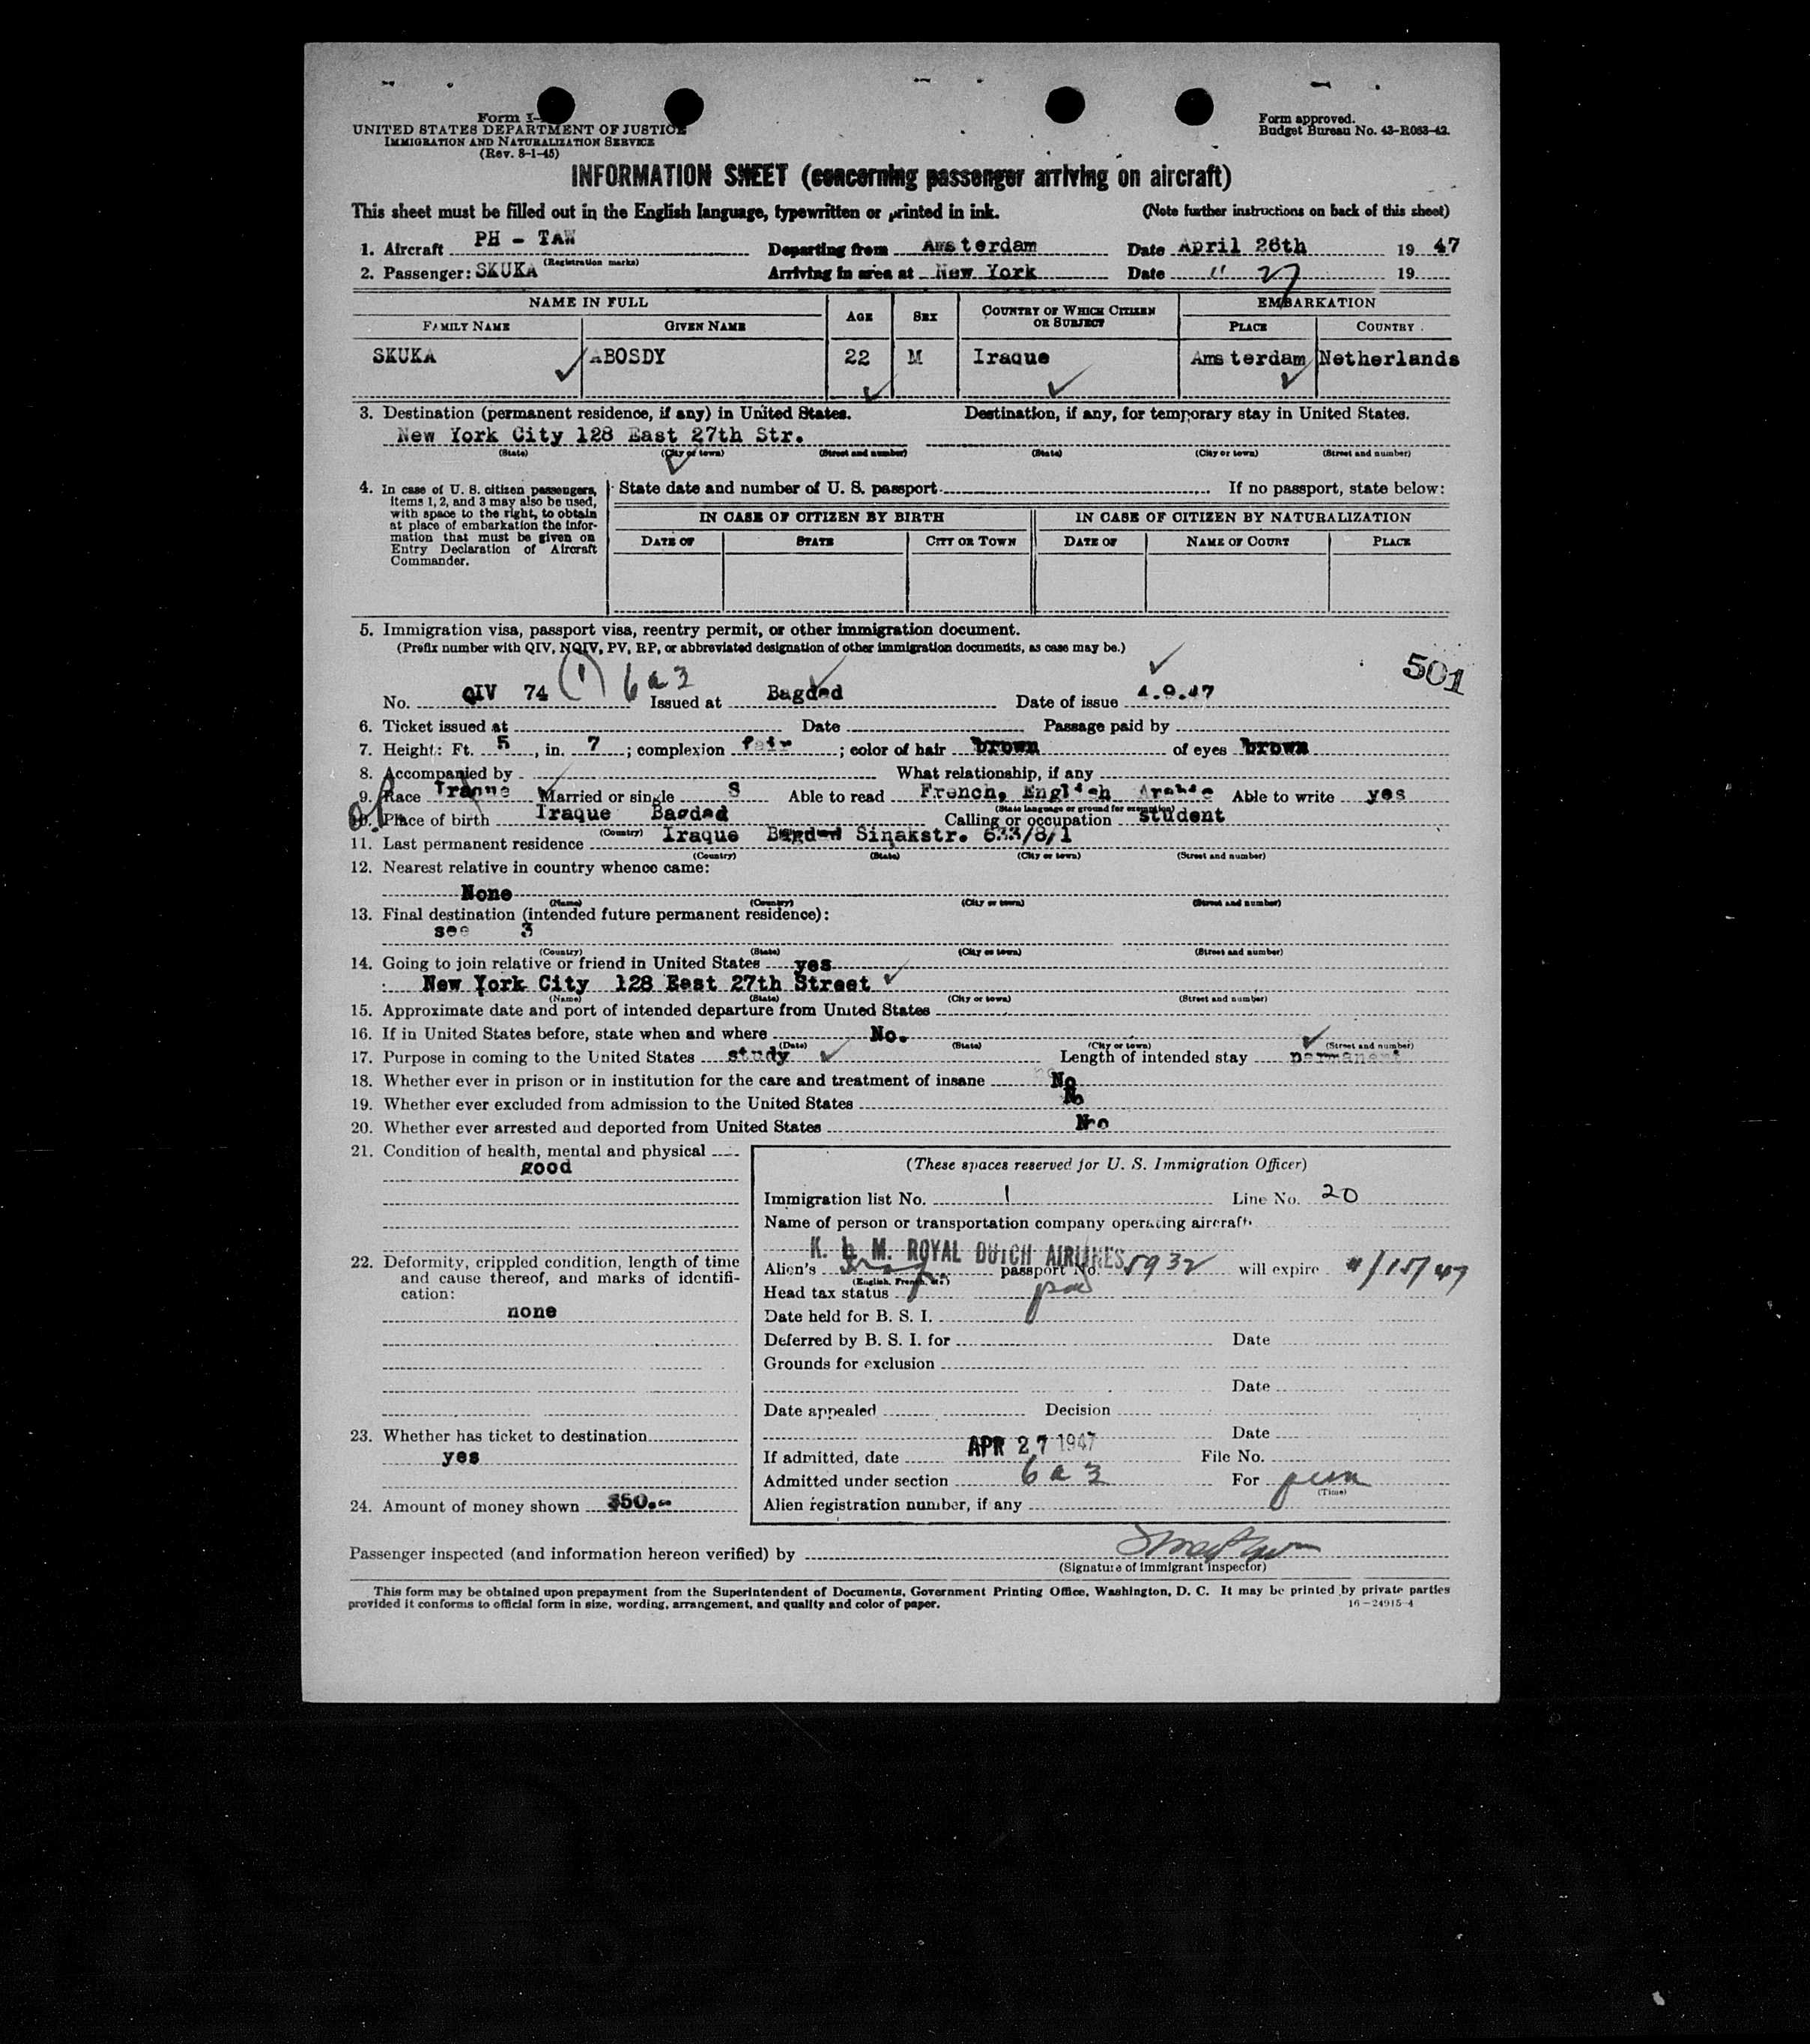 Form I-
UNITED STATES DEPARTMENT OF JUSTICE
IMMIGRATION AND NATURALIZATION SERVICE
(Rev. 8-1-45)
Form approved.
Budget Bureau No. 43-R083-42.
INFORMATION SHEET (concerning passenger arriving on aircraft)
This sheet must be filled out in the English language, typewritten or printed in ink. (Note further instructions on back of this sheet)
1. Aircraft PH - TAW Departing from Amsterdam Date April 26th 19 47
(Registration marks)
2. Passenger: SKUKA Arriving in area at New York Date " 27 19
NAME IN FULL AGE SEX COUNTRY OF WHICH CITIZEN OR SUBJECT EMBARKATION
FAMILY NAME GIVEN NAME PLACE COUNTRY
SKUKA ABOSDY 22 M Iraque Amsterdam Netherlands
3. Destination (permanent residence, if any) in United States. Destination, if any, for temporary stay in United States.
New York City 128 East 27th Str.
(State) (City or town) (Street and number) (State) (City or town) (Street and number)
4. In case of U. S. citizen passengers, items 1, 2, and 3 may also be used, with space to the right, to obtain at place of embarkation the information that must be given on Entry Declaration of Aircraft Commander.
State date and number of U. S. passport If no passport, state below:
IN CASE OF CITIZEN BY BIRTH IN CASE OF CITIZEN BY NATURALIZATION
DATE OF STATE CITY OR TOWN DATE OF NAME OF COURT PLACE
5. Immigration visa, passport visa, reentry permit, or other immigration document.
(Prefix number with QIV, NQIV, PV, RP, or abbreviated designation of other immigration documents, as case may be.)
501
No. QIV 74 (1) 6 a 3 Issued at Bagdad Date of issue 4.9.47
6. Ticket issued at Date Passage paid by
7. Height: Ft. 5, in. 7; complexion fair; color of hair brown of eyes brown
8. Accompanied by What relationship, if any
9. Race Iraque Married or single S Able to read French, English Arabic Able to write yes
(State language or ground for exemption)
10. Place of birth Iraque Bagdad Calling or occupation student
(Country)
11. Last permanent residence Iraque Bagdad Sinakstr. 633/8/1
(Country) (State) (City or town) (Street and number)
12. Nearest relative in country whence came:
None
(Name) (Country) (City or town) (Street and number)
13. Final destination (intended future permanent residence):
see 3
(Country) (State) (City or town) (Street and number)
14. Going to join relative or friend in United States yes
New York City 128 East 27th Street
(Name) (State) (City or town) (Street and number)
15. Approximate date and port of intended departure from United States
16. If in United States before, state when and where No.
(Date) (State) (City or town) (Street and number)
17. Purpose in coming to the United States study Length of intended stay permanent
18. Whether ever in prison or in institution for the care and treatment of insane No
19. Whether ever excluded from admission to the United States No
20. Whether ever arrested and deported from United States No
21. Condition of health, mental and physical
good
22. Deformity, crippled condition, length of time and cause thereof, and marks of identification:
none
23. Whether has ticket to destination
yes
24. Amount of money shown $50.-
(These spaces reserved for U. S. Immigration Officer)
Immigration list No. 1 Line No. 20
Name of person or transportation company operating aircraft
K. L. M. ROYAL DUTCH AIRLINES
Alien's Iraq passport No. 5932 will expire 4/15/47
(English, French, etc.)
Head tax status pd
Date held for B. S. I.
Deferred by B. S. I. for Date
Grounds for exclusion
Date
Date appealed Decision
Date
If admitted, date APR 27 1947 File No.
Admitted under section 6 a 3 For perm
(Time)
Alien registration number, if any
Passenger inspected (and information hereon verified) by
(Signature of immigrant inspector)
This form may be obtained upon prepayment from the Superintendent of Documents, Government Printing Office, Washington, D. C. It may be printed by private parties
provided it conforms to official form in size, wording, arrangement, and quality and color of paper.
16-24915-4